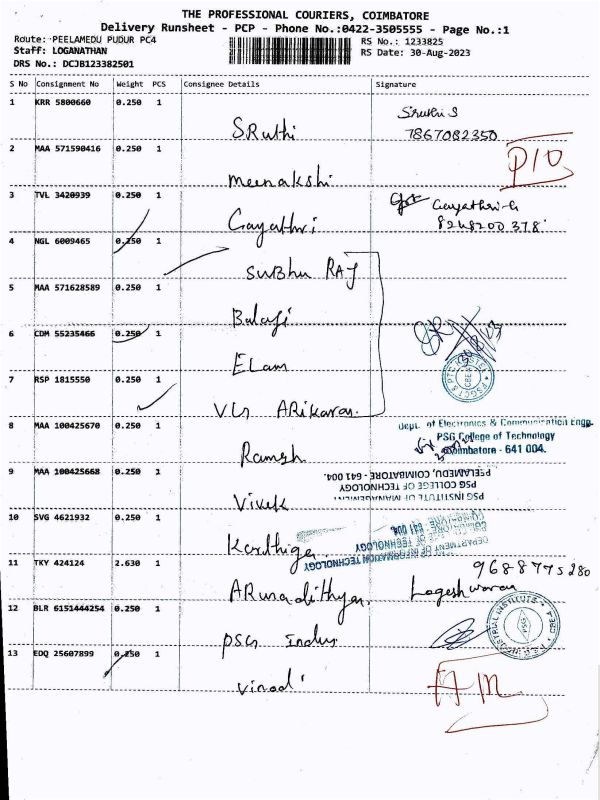 THE PROFESSIONAL COURIERS, COIMBATORE
Delivery Runsheet - PCP - Phone No.:0422-3505555 - Page No.:1
Route: PEELAMEDU PUDUR PC4 RS No.: 1233825
Staff: LOGANATHAN RS Date: 30-Aug-2023
DRS No.: DCJB123382501
S No Consignment No Weight PCS Consignee Details Signature
1 KRR 5800660 0.250 1 SRuthi Sruthi S
7867082350
2 MAA 571590416 0.250 1 meenakshi
3 TVL 3420939 0.250 1 Gayathri Gayathri-G
8248200378
4 NGL 6009465 0.250 1 SUBHU RAJ
5 MAA 571628589 0.250 1 Balaji
6 CDM 55235466 0.250 1 ELam
7 RSP 1815550 0.250 1 VLS ARikaran
8 MAA 100425670 0.250 1 Ramesh
Dept. of Electronics & Communication Engg.
PSG College of Technology
Coimbatore - 641 004.
9 MAA 100425668 0.250 1 Vivek
PSG INSTITUTE OF MANAGEMENT
PSG COLLEGE OF TECHNOLOGY
PEELAMEDU, COIMBATORE - 641 004.
10 SVG 4621932 0.250 1 Karthiga
DEPARTMENT OF INFORMATION TECHNOLOGY
PSG COLLEGE OF TECHNOLOGY
COIMBATORE - 641 004
11 TKY 424124 2.630 1 ARunadithyan 9688775280
Logeshwaran
12 BLR 6151444254 0.250 1 PSG Indus
13 EDQ 25607899 0.250 1 Vinod